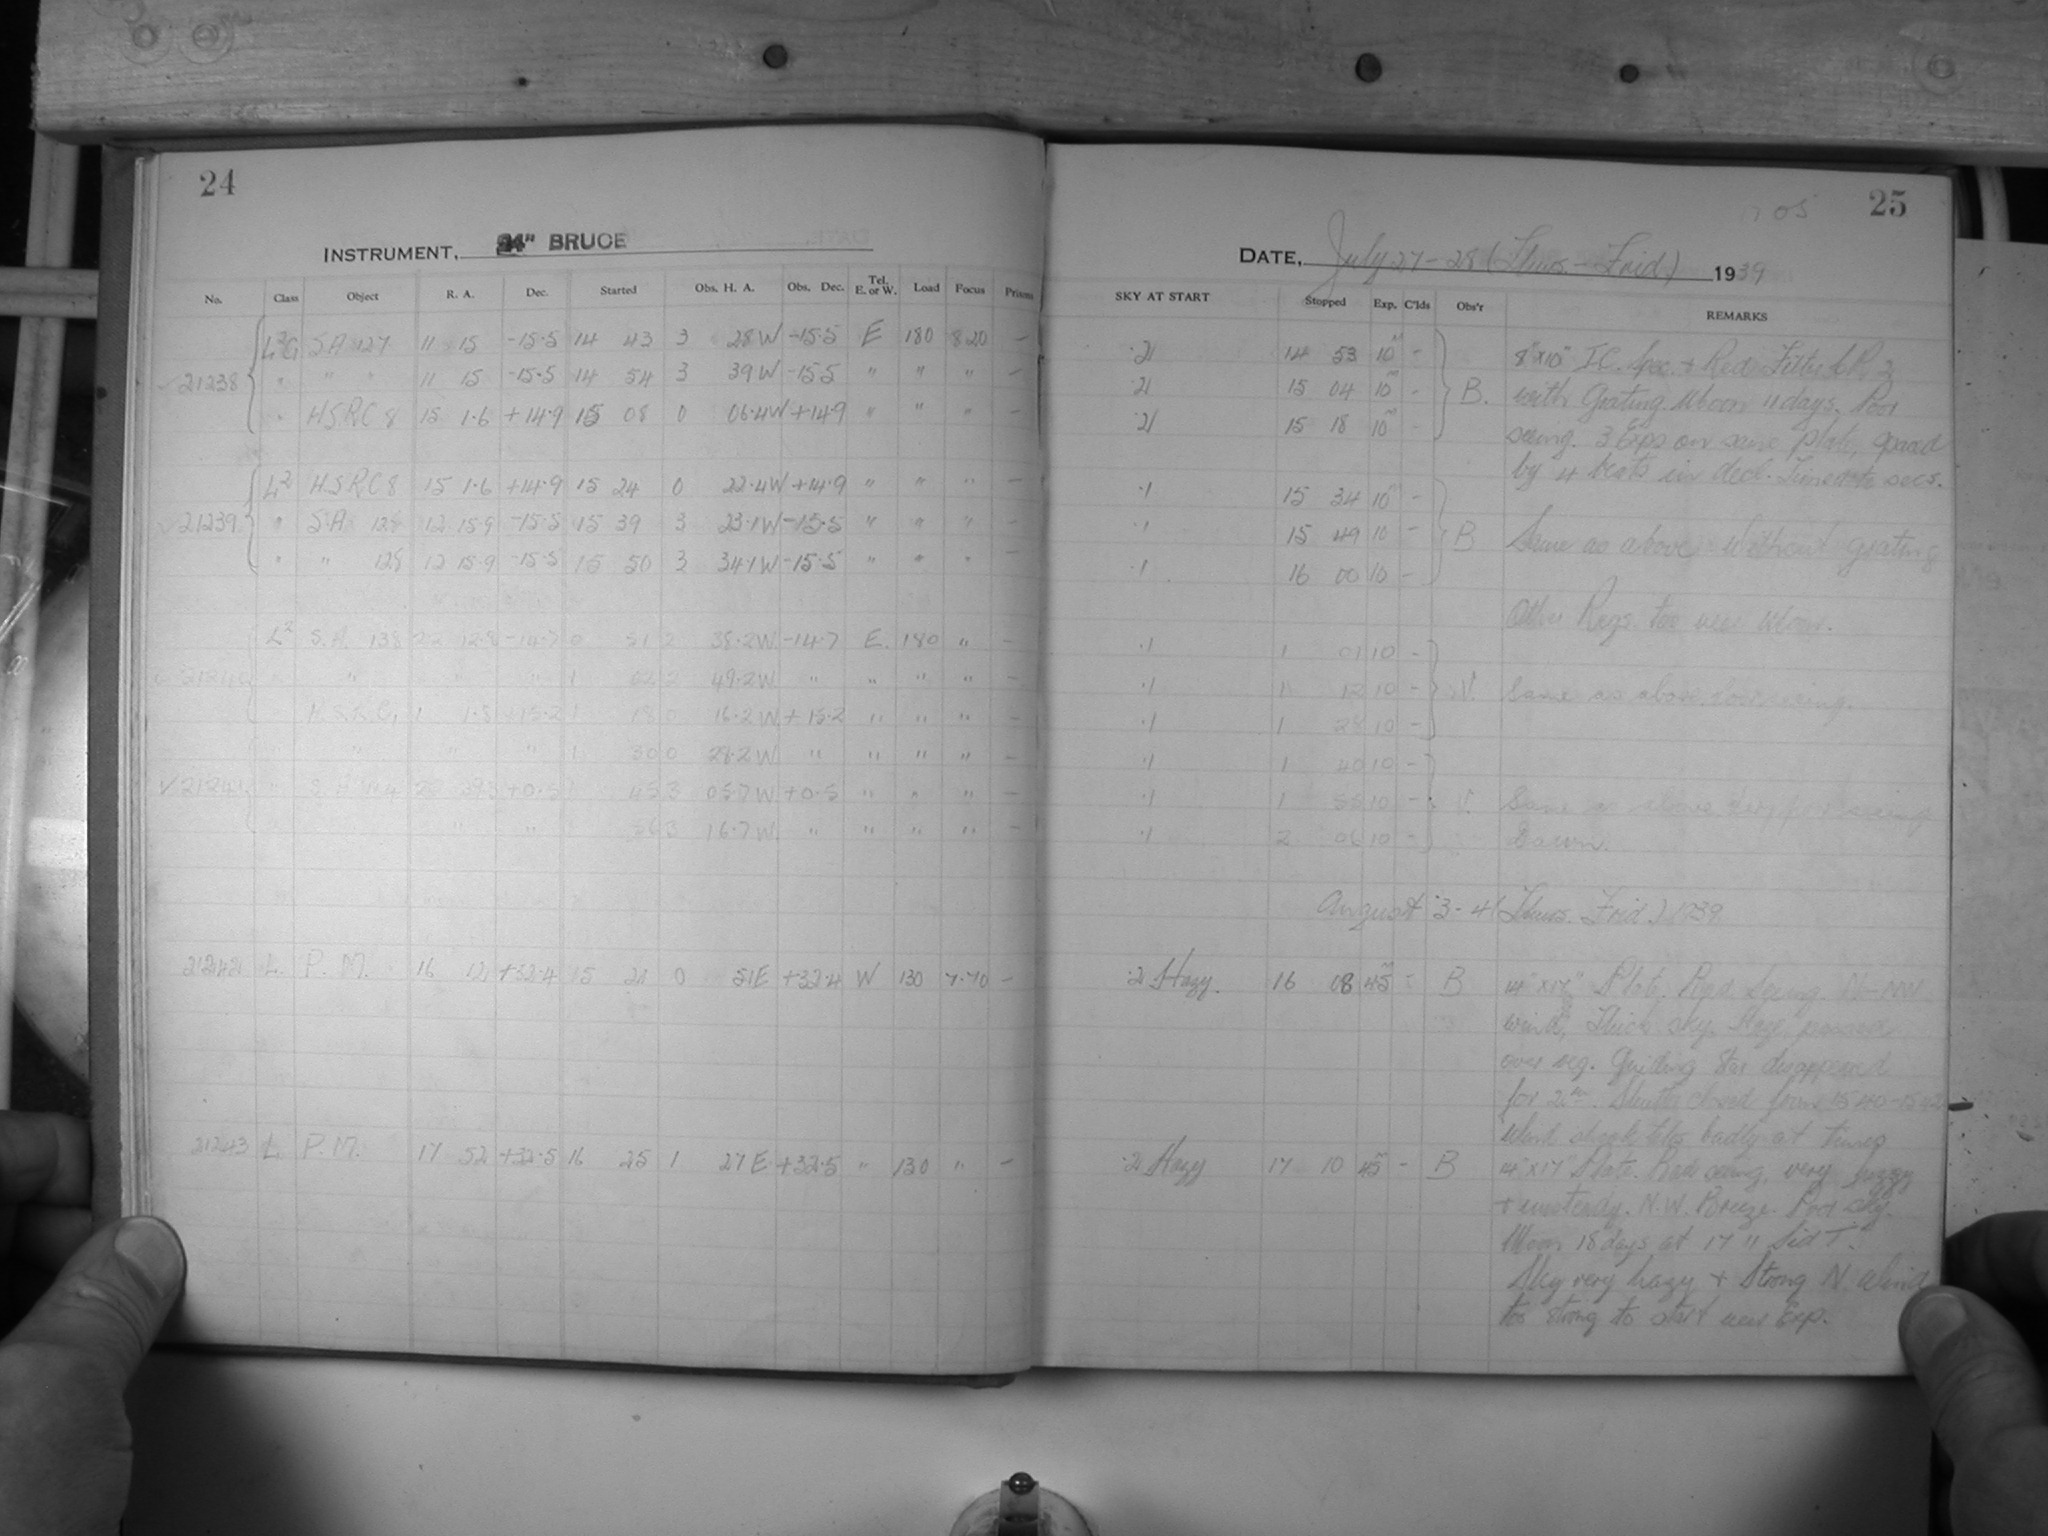 24
INSTRUMENT, 24" BRUCE
No. Class Object R. A. Dec. Started Obs. H. A. Obs. Dec. Tel. E. or W. Load Focus Prism
L²G SA 127 11 15 -15.5 14 43 3 28W -15.5 E 180 8.20 -
21238 " " " 11 15 -15.5 14 54 3 39W -15.5 " " " -
" HSRC 8 15 1.6 +14.9 15 08 0 06.4W +14.9 " " "
L² HSRC 8 15 1.6 +14.9 15 24 0 22.4W +14.9 " " "
21239 " SA 128 12 15.9 -15.5 15 39 3 23.1W -15.5 " " "
" " 128 12 15.9 -15.5 15 50 3 34.1W -15.5 " " "
L² S.A. 138 22 12.8 -14.7 0 51 2 38.2W -14.7 E. 180 " -
" " " 1 02 2 49.2W " " " " -
H.S.R.C. 1 1 1.8 +15.2 1 18 0 16.2W +15.2 " " " -
" " " 1 30 0 28.2W " " " " -
✓21241 +0.5 1 45 3 05.7W +0.5 " " " -
" " 56 3 16.7W " " " " -
21242 L. P. M. 16 12 +32.4 15 21 0 51E +32.4 W 130 7.70 -
21243 L P. M. 17 52 +32.5 16 25 1 27E +32.5 " 130 " -
25
DATE, July 27-28 (Thurs.-Frid.) 1939
SKY AT START Stopped Exp. C'lds Obs'r REMARKS
.2 14 53 10ᵐ - 8"x10" I.C. Spec. + Red Filter
.2 15 04 10ᵐ - B. with Grating. Moon 11 days. Poor
.2 15 18 10ᵐ - seeing. 3 Exps on same plate, spaced
by 4 beats in decl.
.1 15 34 10ᵐ -
.1 15 49 10 - B Same as above. Without grating
.1 16 00 10 -
Other Regs. too near Moon.
.1 1 01 10 -
.1 1 12 10 - Same as above. Poor seeing.
.1 1 28 10 -
.1 1 40 10 -
.1 1 55 10 - Same as above. Very poor seeing
.1 2 06 10 - Dawn.
August 3-4 (Thurs. Frid.) 1939
.2 Hazy. 16 08 45ᵐ - B 14"x17" Plate. Bad Seeing. N-NW
wind, Thick sky. Haze passed
over reg. Guiding star disappeared
for 2ᵐ. Shutter closed from 15 40-15 42
Wind shook badly at times
.2 Hazy 17 10 45 - B 14"x17" Plate. Bad seeing, very fuzzy
+ unsteady. N.W. Breeze. Poor sky.
Moon 18 days at 17 11 Sid T.
Sky very hazy + Strong N. Wind
too strong to start new Exp.